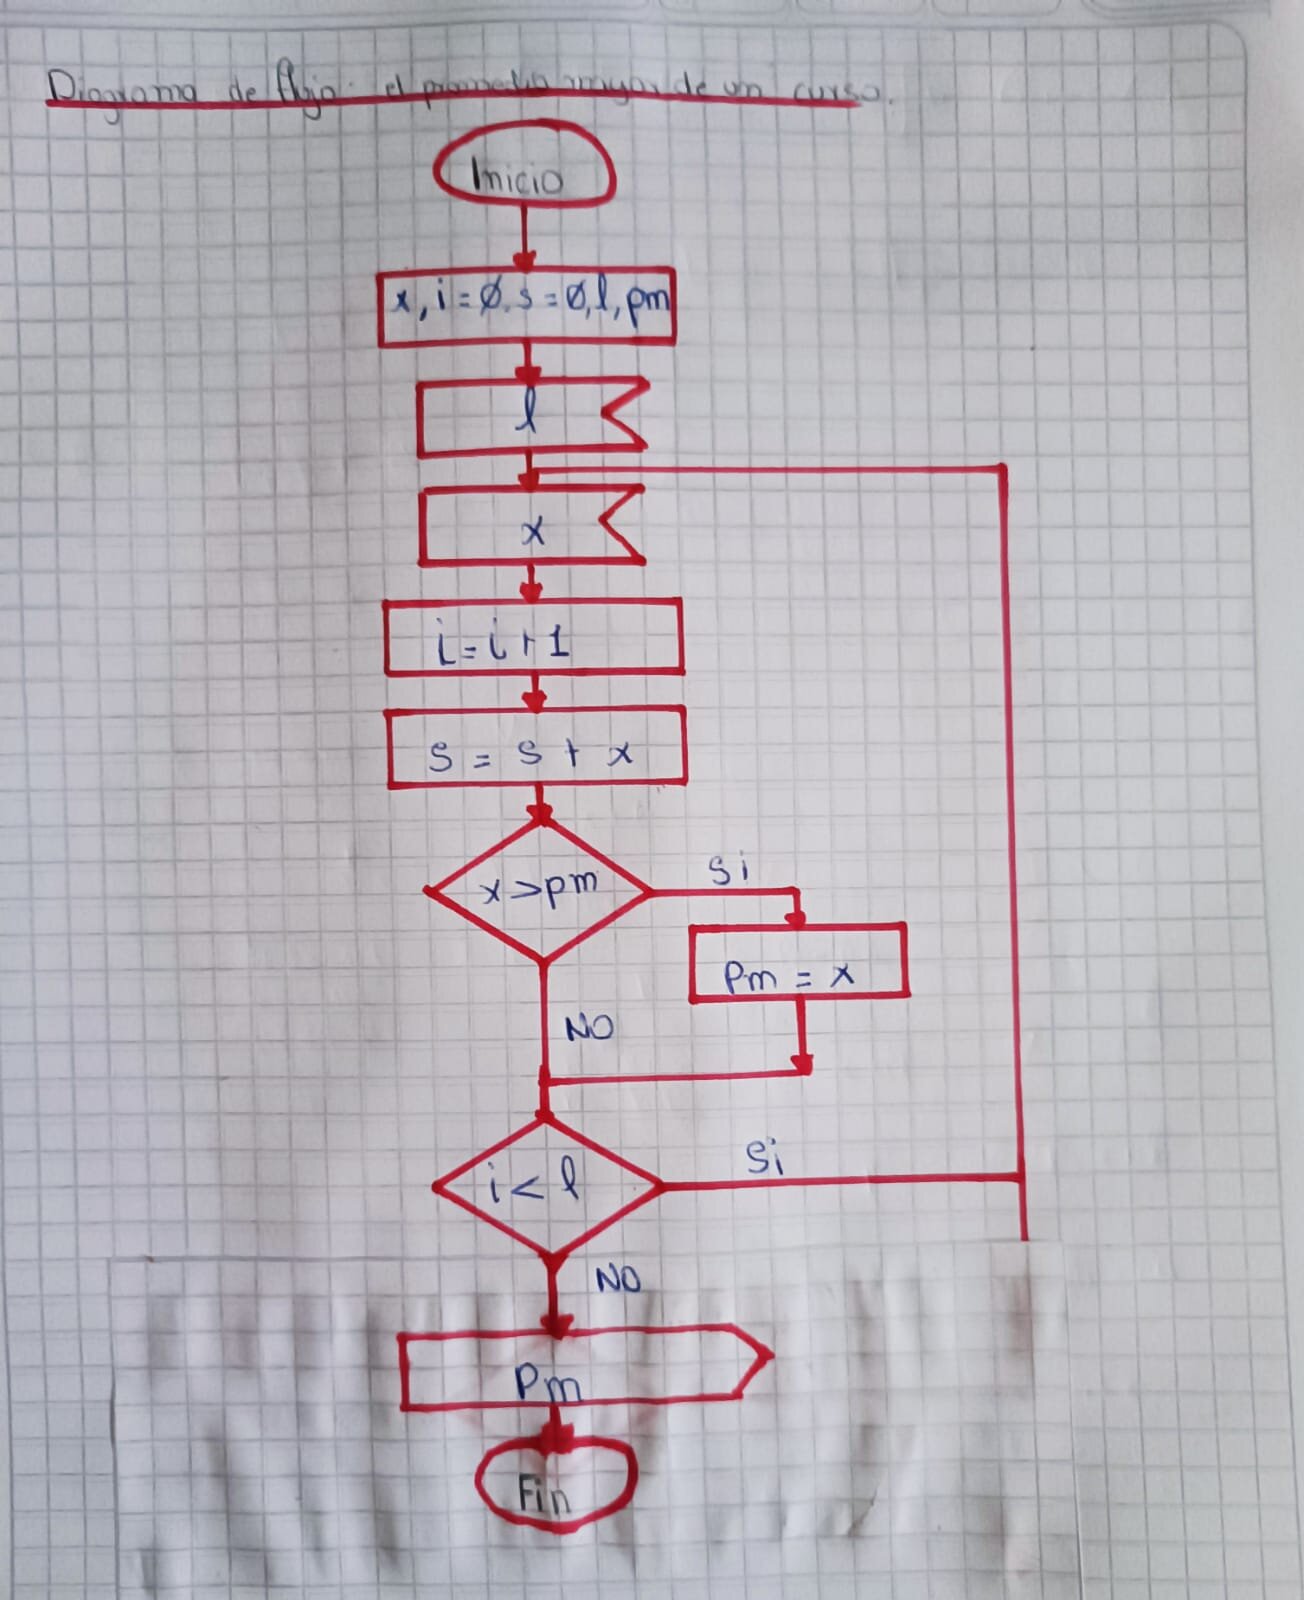 Diagrama de flujo: el promedio mayor de un curso.
Inicio
x, i = Ø, s = Ø, l, pm
l
x
i = i + 1
s = s + x
x > pm
Si
Pm = x
NO
i < l
Si
NO
Pm
Fin